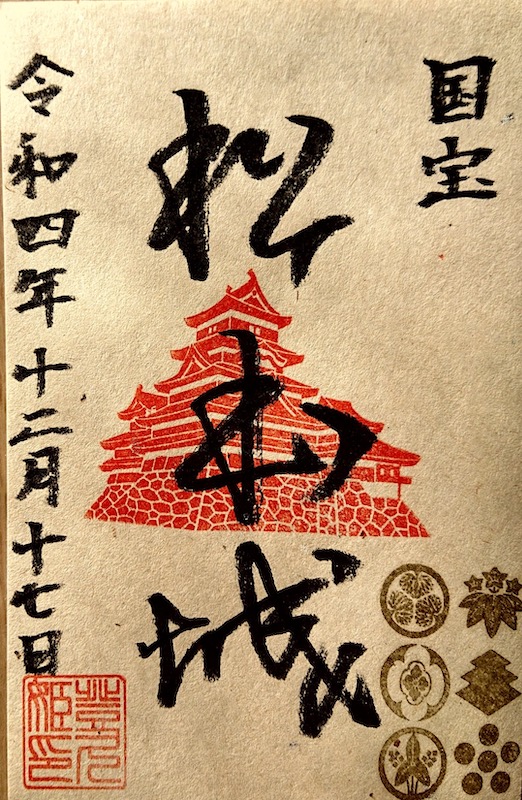 国宝
松本城
令和四年十二月十七日